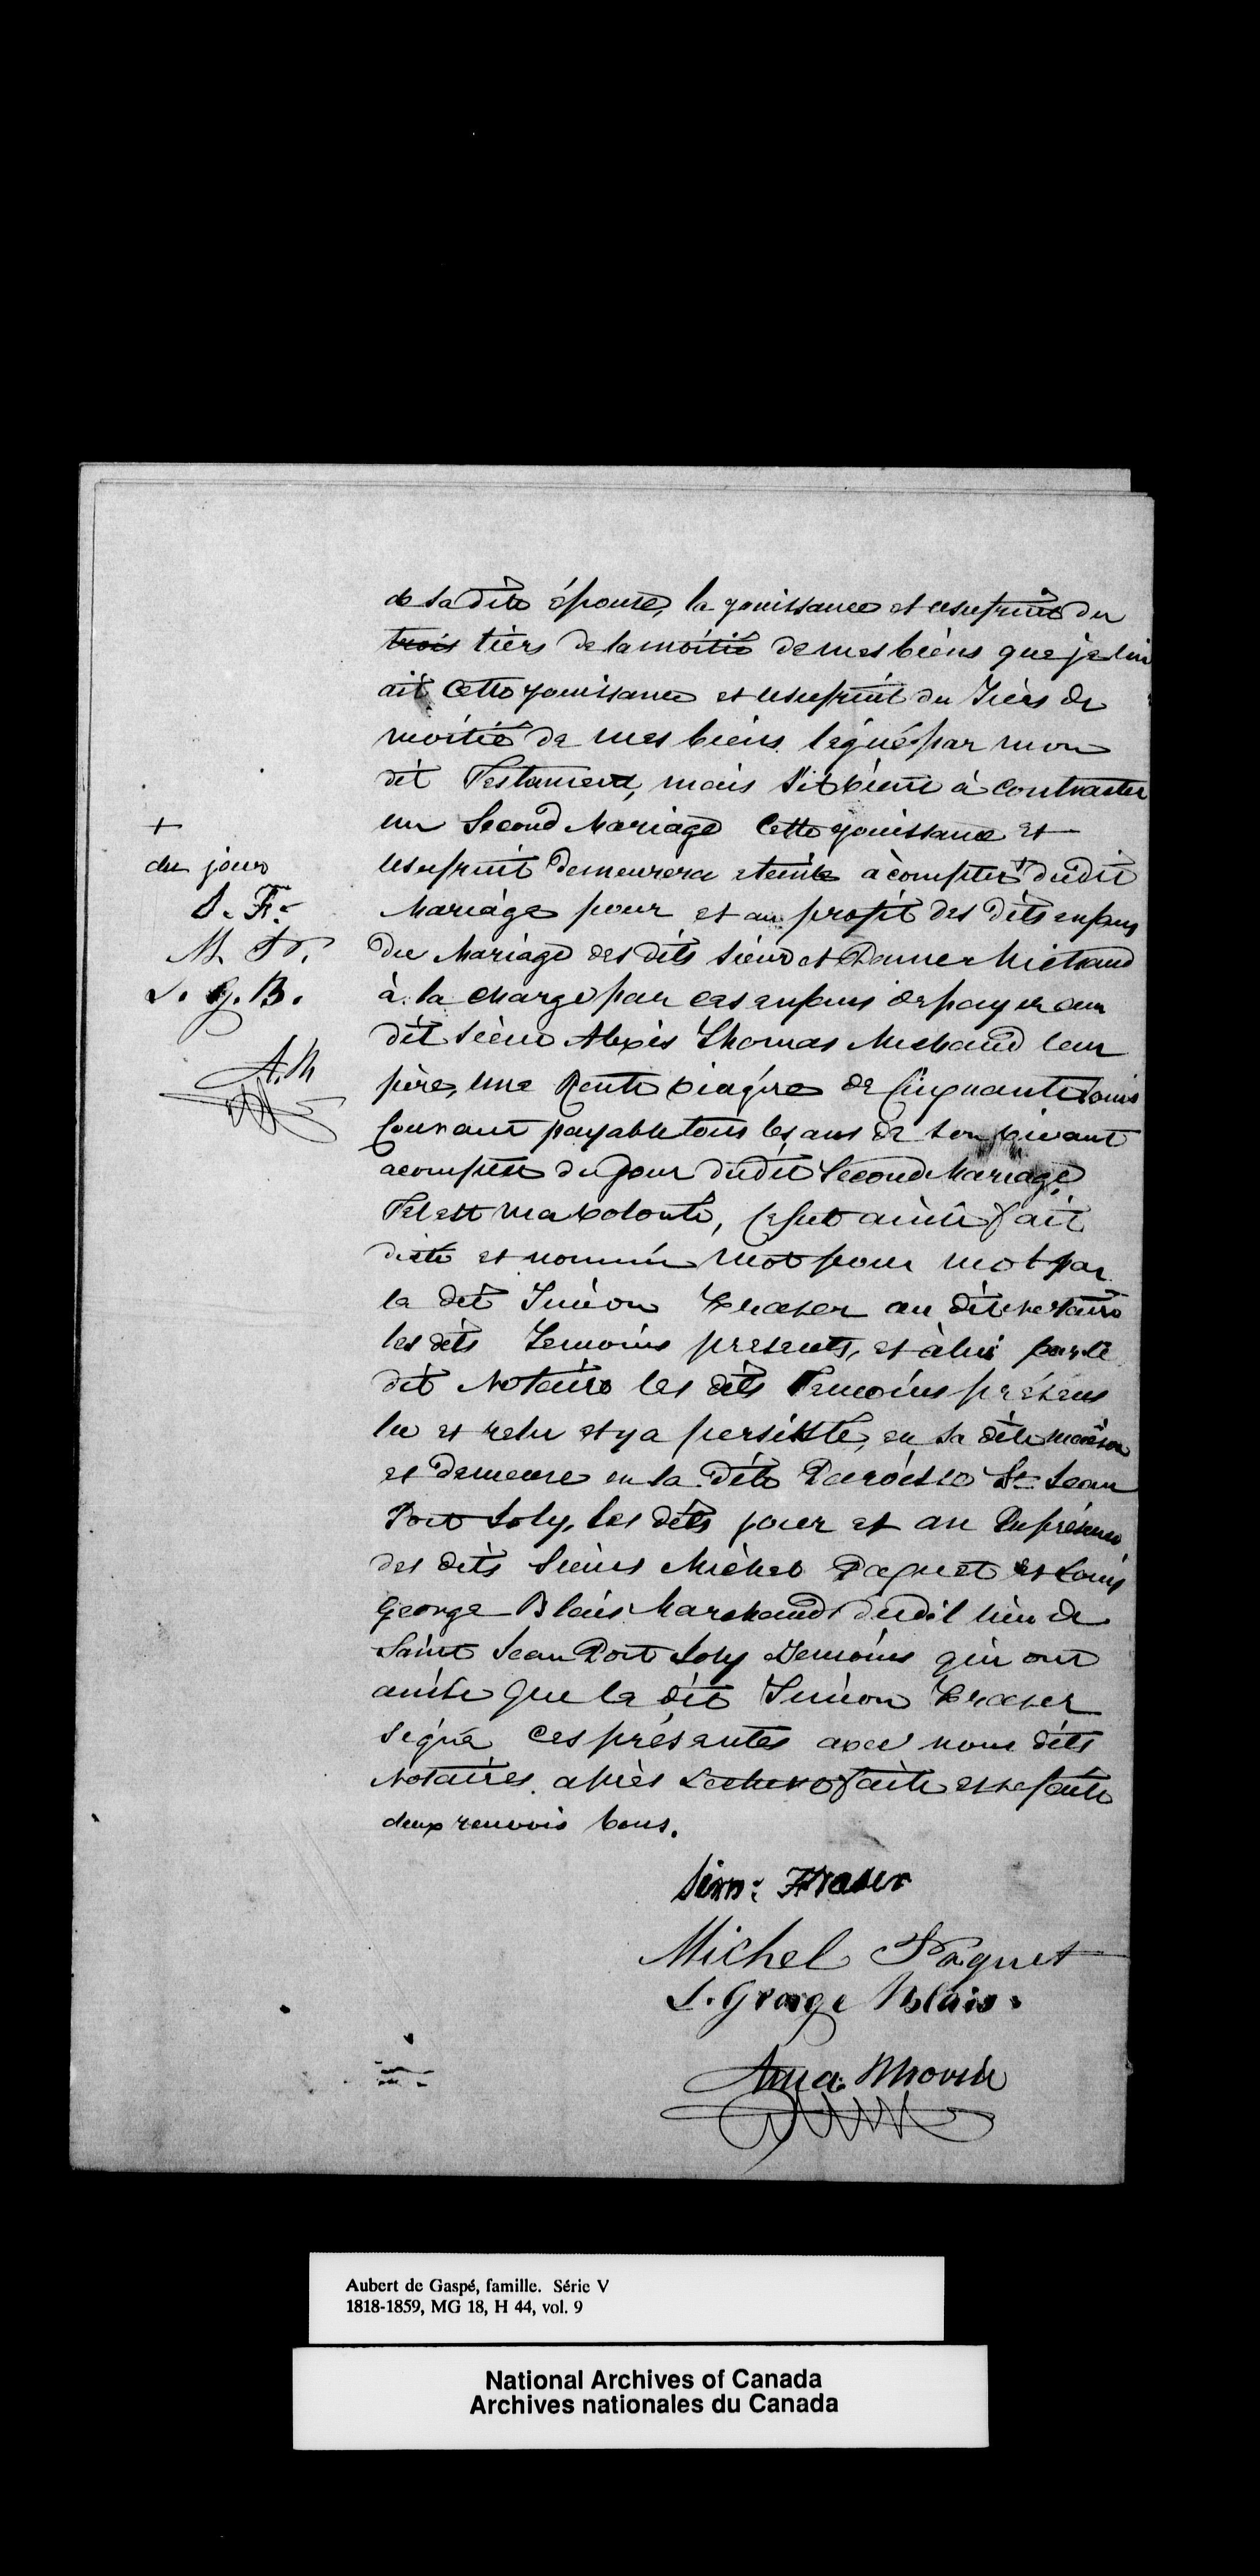 de sa dite épouse, la jouissance et usufruit du
trois tiers de la moitié de mes biens que je lui
ait cette jouissance et usufruit du tiers de
moitié de mes biens légué par mon
dit Testament, mais s'il vient à contracter
un Second Mariage cette jouissance et
usufruit demeurera éteinte à compter + dudit
Mariage pour et au profit des dits enfans
du Mariage des dits Sieur et Dame Michaud
à la charge par ces enfans de payer au
dit Sieur Alexis Thomas Michaud leur
père, une Rente viagère de Cinquante Louis
Courant payable tous les ans de son vivant
acompter du jour dudit Second Mariage
Tel est ma volonté, Ce fut ainsi fait
dicté et nommé mot pour mot par
le dit Siméon Fraser au dit notaire
les dits Temoins presents, et à lui par le
dit Notaire les dits Temoins présens
lu et relu et y a persisté, en sa dite maison
et demeure en la dite Paroisse St Jean
Port Joly, les dits jour et an En présence
des dits Sieurs Michel Paquet et Louis
George Blais Marchands dudit lieu de
Saint Jean Port Joly Temoins qui ont
ainsi que le dit Siméon Fraser
signé ces présentes avec nous dits
Notaires après Lecture faite et refaite
deux renvois bons.
+
du jour
S. Fr.
M. P.
L. G. B.
A. M
Sim: Fraser
Michel Paquet
L. George Blais.
Ama: Morin
Aubert de Gaspé, famille. Série V
1818-1859, MG 18, H 44, vol. 9
National Archives of Canada
Archives nationales du Canada